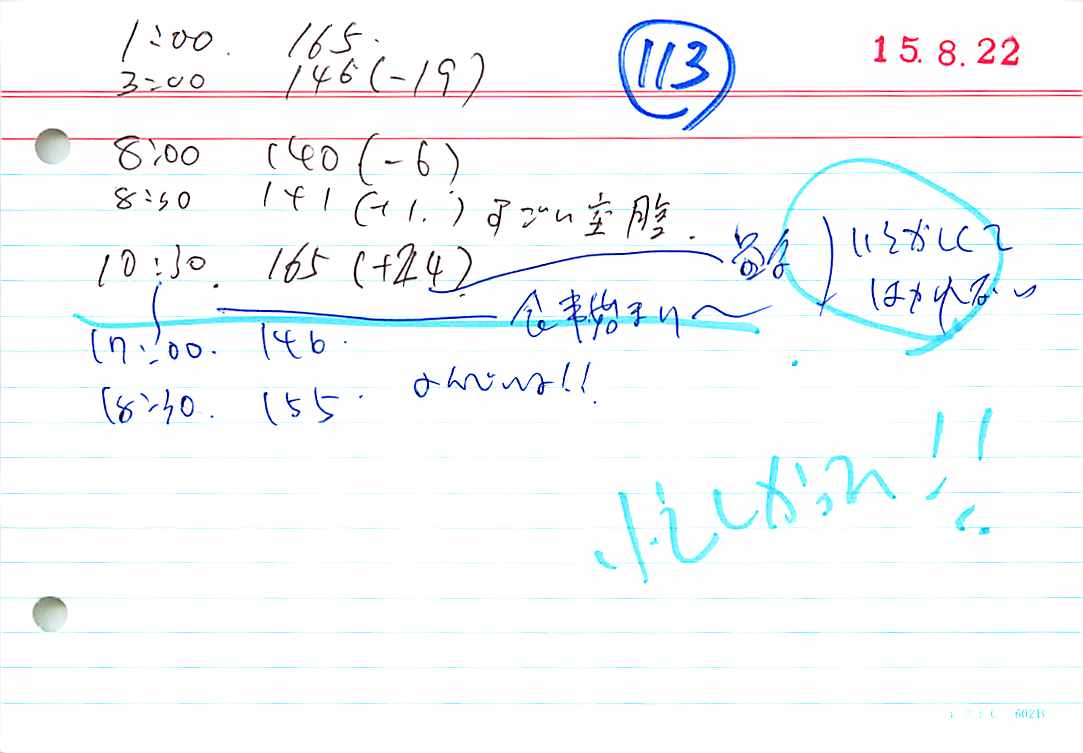 1:00. 165.
113
15.8.22
3:00 146(-19)
8:00 140(-6)
8:30 141(+1.) すごい空腹.
10:30. 165(+24)
いそがしくて
はかれない
食事始まり〜
17:00. 146.
18:30. 155. なんでいな!!
!!
6021